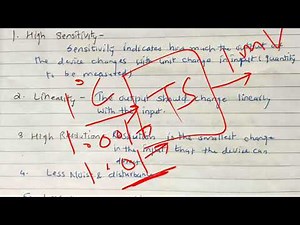 1. High Sensitivity -
Sensitivity indicates how much the output of
the device changes with unit change in input (quantity
to be measured).
2. Linearity - The output should change linearly
with the input.
3. High Resolution - Resolution is the smallest change
in the input that the device can
4. Less Noise & disturbance
TS
1 mV
1.001
1.01